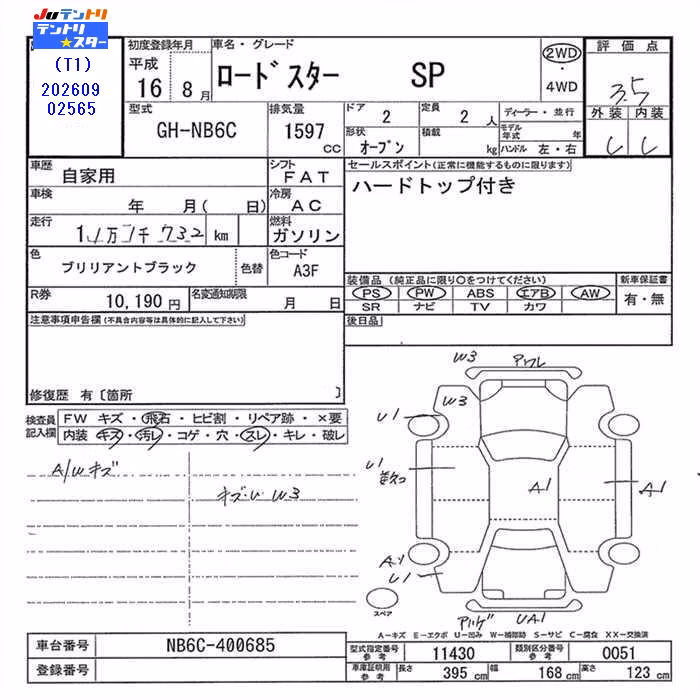 JUテントリ
テントリ★スター
(T1)
202609
02565
初度登録年月
平成
16 8 月
車名・グレード
ロードスター SP
2WD
・
4WD
評価点
3.5
外装 内装
型式
GH-NB6C
排気量
1597 cc
ドア 2
定員 2 人
ディーラー・並行
形状 オープン
積載 kg
モデル年式 年
ハンドル 左・右
車歴 自家用
シフト FAT
セールスポイント(正常に機能するものに限ります)
ハードトップ付き
車検 年 月( 日)
冷房 AC
走行 11万1千732 km
燃料 ガソリン
色 ブリリアントブラック
色替
色コード A3F
装備品(純正品に限り○をつけてください)
PS・PW・ABS・エアB・AW
SR・ナビ・TV・カワ
新車保証書
有・無
R券 10,190 円
名変通知期限 月 日
後日品
注意事項申告欄(不具合内容等は具体的に記入して下さい)
修復歴 有〔箇所 〕
検査員記入欄
FW キズ・飛石・ヒビ割・リペア跡・×要
内装 キズ・汚レ・コゲ・穴・スレ・キレ・破レ
A/Wキズ
キズ・U W3
W3
W3
U1
U1
A1
A1
U1
UA1
スペア
A-キズ E-エクボ U-凹み W-補修跡 S-サビ C-腐食 XX-交換済
車台番号 NB6C-400685
登録番号
型式指定番号 参考 11430
類別区分番号 参考 0051
車庫証明用 参考
長さ 395 cm
幅 168 cm
高さ 123 cm